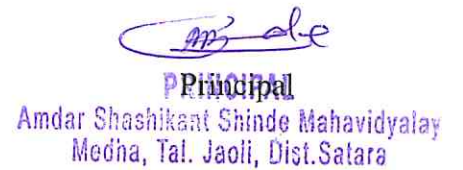 Principal
PRINCIPAL
Amdar Shashikant Shinde Mahavidyalay
Medha, Tal. Jaoli, Dist.Satara